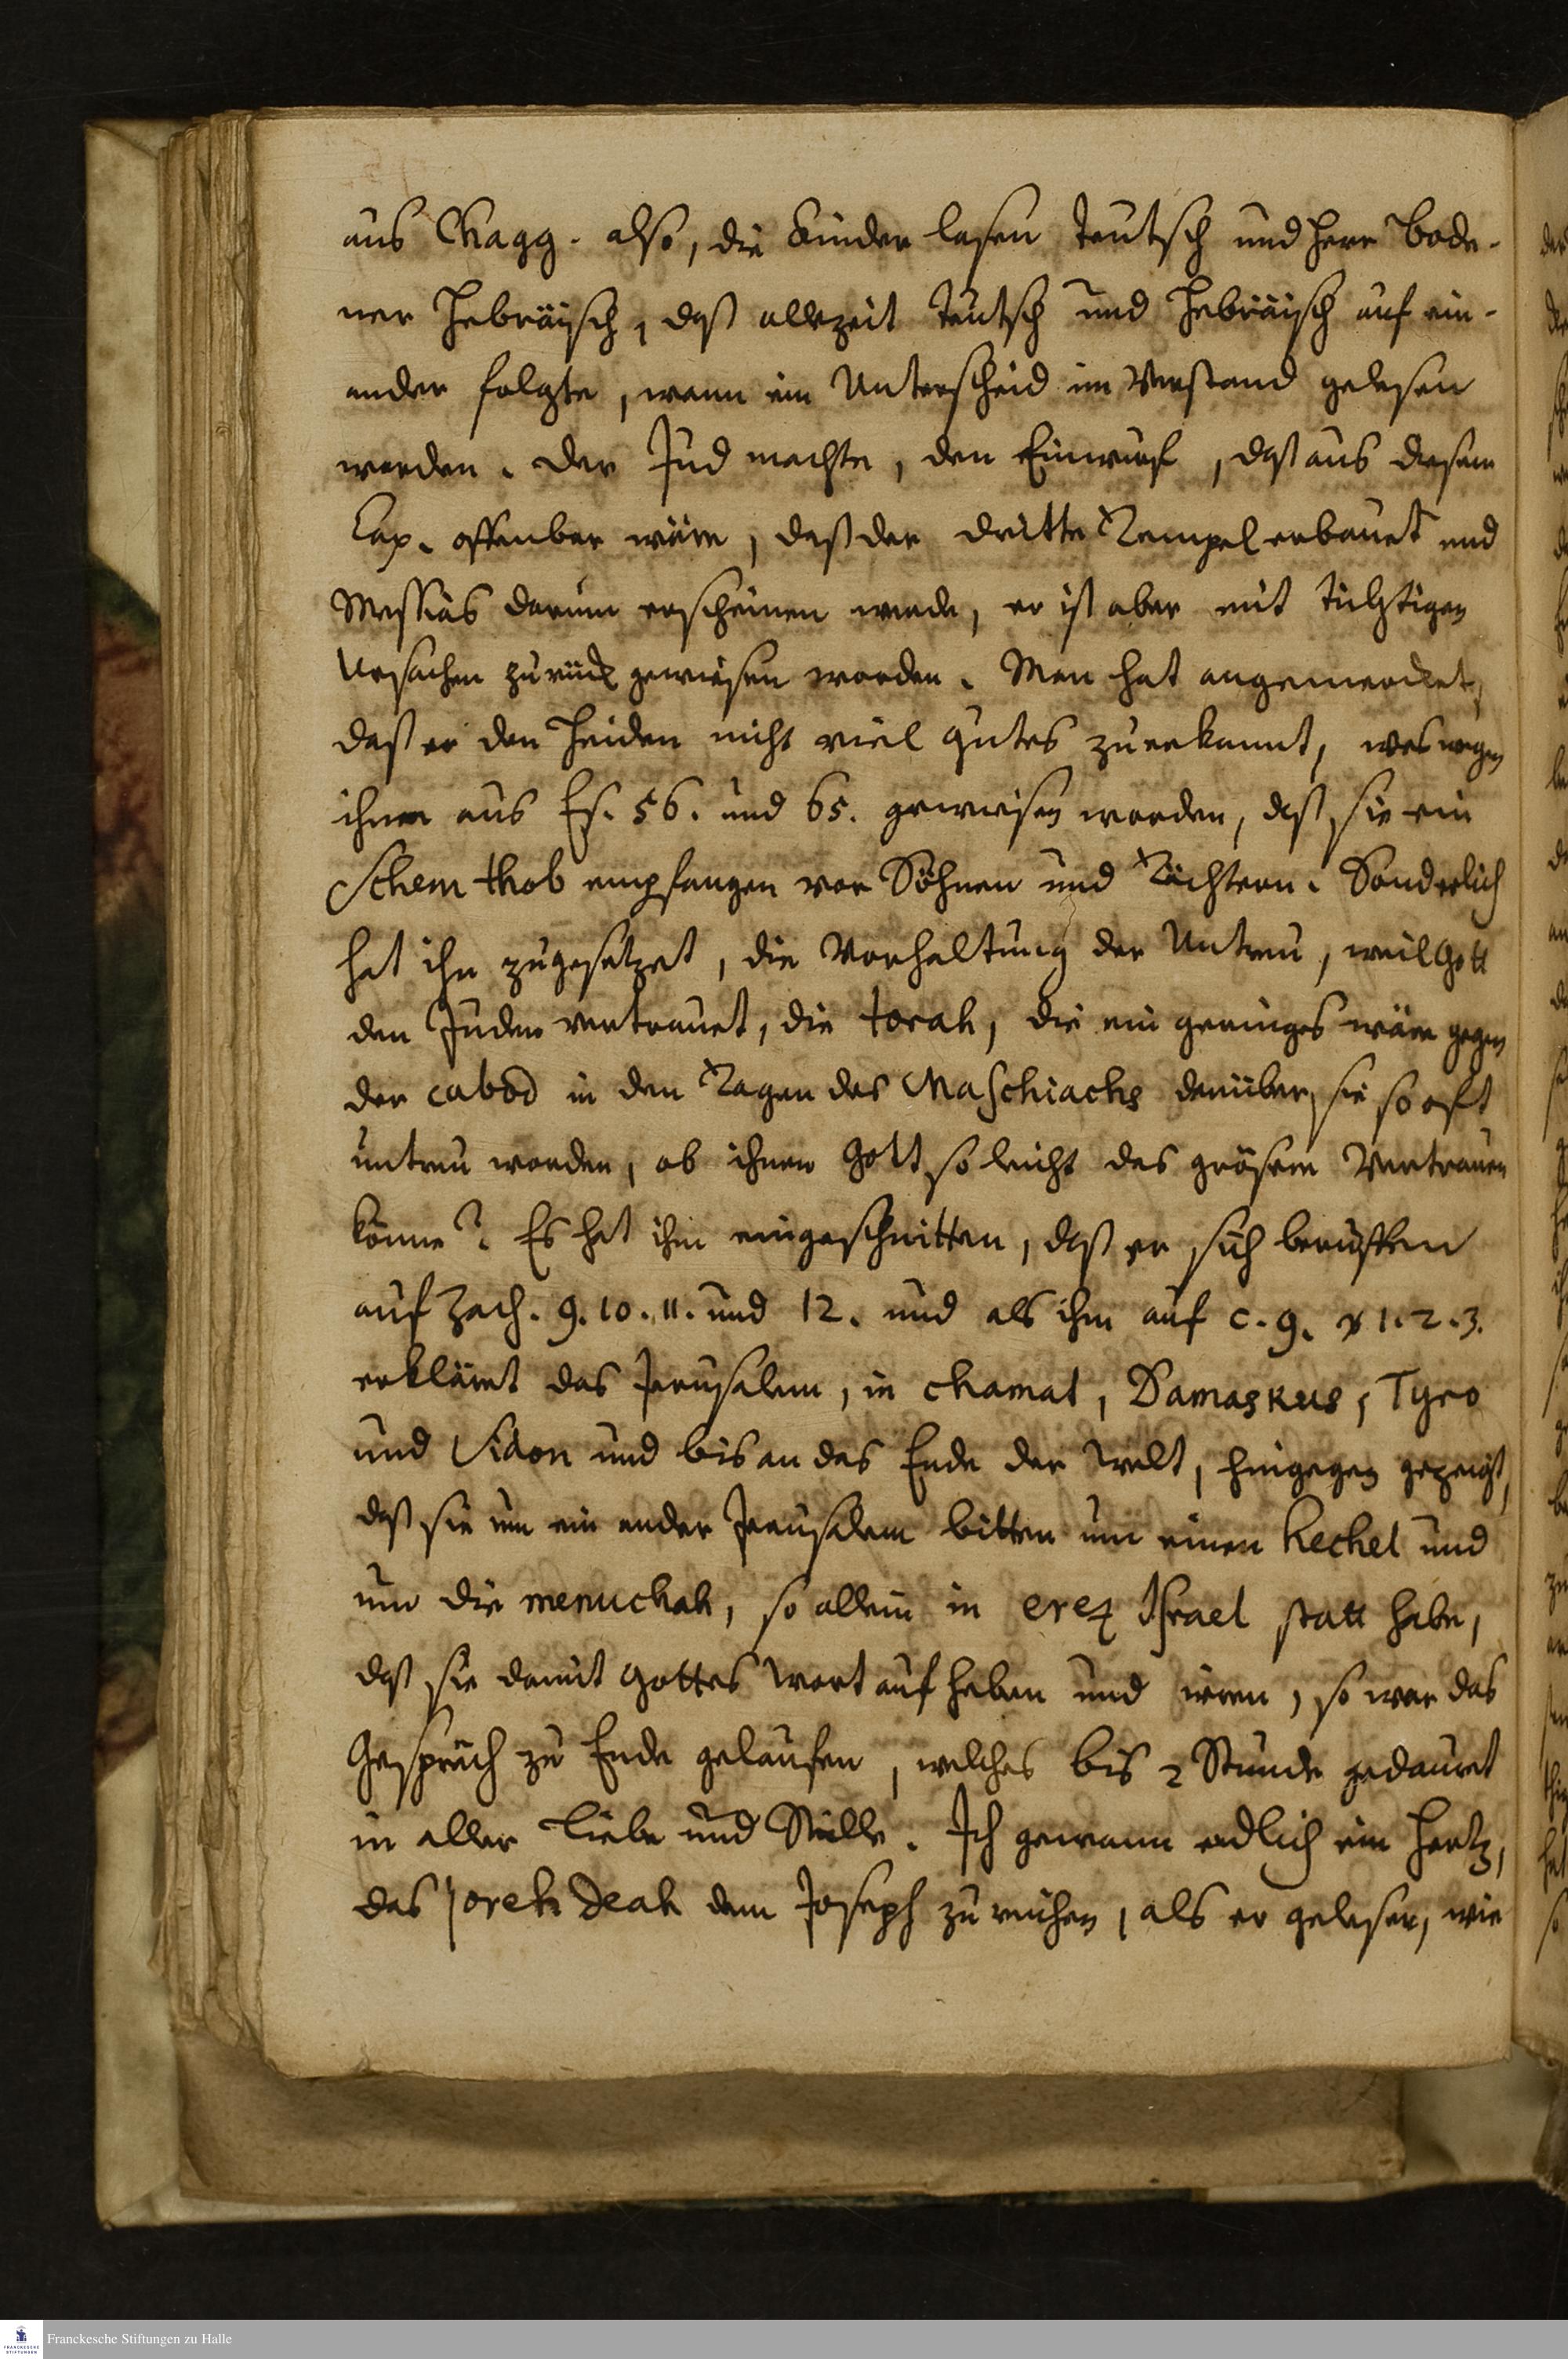 aus Chagg. also, die Kinder lasen teutsch und Herr Bode-
ner Hebräisch, daß allezeit teutsch und Hebräisch auf ein-
ander folgte, wann ein Unterscheid im Verstand gelesen
worden. Der Jud machte, den Einwurf, daß aus diesem
Cap. offenbar wäre, daß der dritte Tempel erbauet und
Messias darinn erscheinen werde, er ist aber mit tüchtigen
Ursachen zurück gewiesen worden. Man hat angemercket,
daß er den Heiden nicht viel gutes zuerkannt, weswegen
ihnen aus Es. 56. und 65. gewiesen worden, daß sie ein
Schem thob empfangen vor Söhnen und Töchtern. Sonderlich
hat ihn zugesetzet, die Vorhaltung der Untreu, weil Gott
den Juden vertrauet, die torah, die ein geringes wäre gegen
der cabod in den Tagen des Maschiachs darüber sie so oft
untreu worden, ob ihnen Gott so leicht das grösere Vertrauen
könne? Es hat ihm eingeschnitten, daß er sich beruffen
auf Zach. 9. 10. 11. und 12. und als ihm auf c. 9. v 1. 2. 3.
erklärt das Jerusalem, in chamat, Damaskus, Tyro
und Sidon und bis an das Ende der Welt, hingegen gezeigt,
daß sie um ein ander Jerusalem bitten um einen hechel und
um die menuchah, so allein in erez Israel statt habe,
daß sie damit Gottes Wort aufheben und irren, so war das
Gespräch zu Ende gelaufen, welches bis 2 Stunde gedauret
in aller Liebe und Stille. Ich gewann endlich ein Hertz,
das joreh deah dem Joseph zu reichen, als er gelesen, wie
Franckesche Stiftungen zu Halle